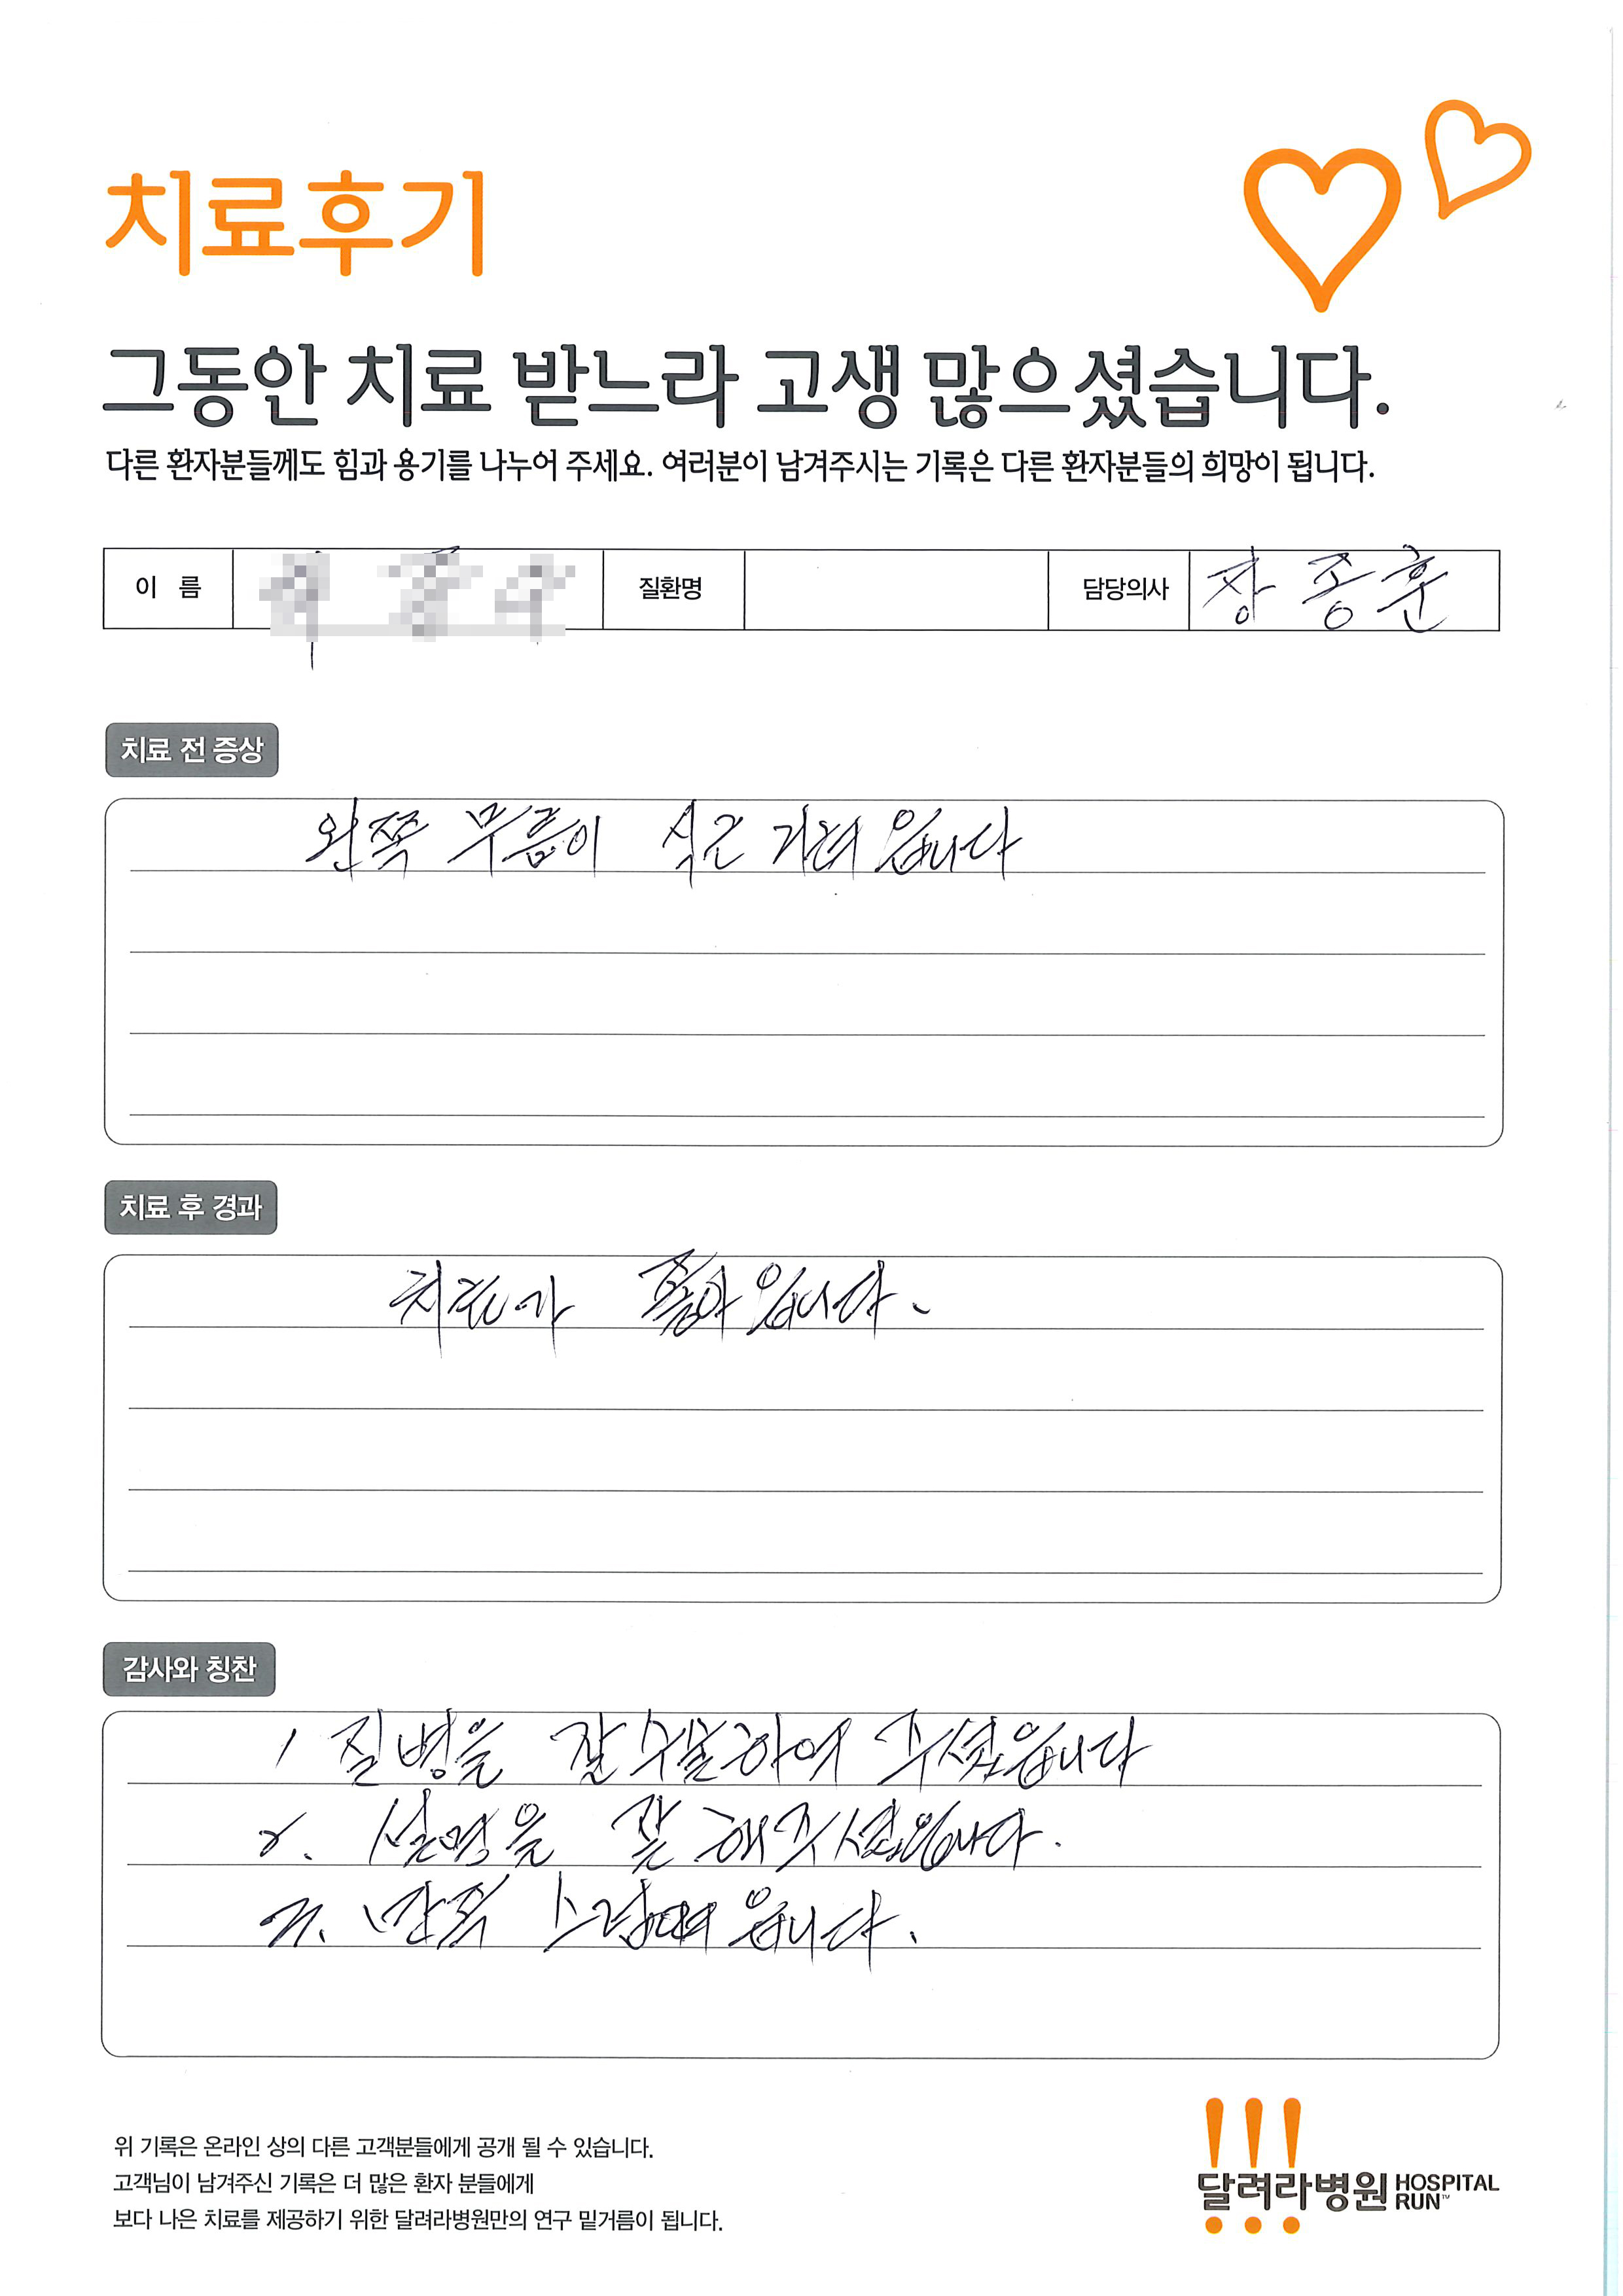 치료후기
그동안 치료 받느라 고생 많으셨습니다.
다른 환자분들께도 힘과 용기를 나누어 주세요. 여러분이 남겨주시는 기록은 다른 환자분들의 희망이 됩니다.
이 름 질환명 담당의사 장종훈
치료 전 증상
왼쪽 무릎이
치료 후 경과
치료가
감사와 칭찬
1 질병을 잘 하여 주셨읍니다
2. 설명을 잘 해주셨읍니다.
3. 만족
위 기록은 온라인 상의 다른 고객분들에게 공개 될 수 있습니다.
고객님이 남겨주신 기록은 더 많은 환자 분들에게
보다 나은 치료를 제공하기 위한 달려라병원만의 연구 밑거름이 됩니다.
달려라병원 HOSPITAL RUN™